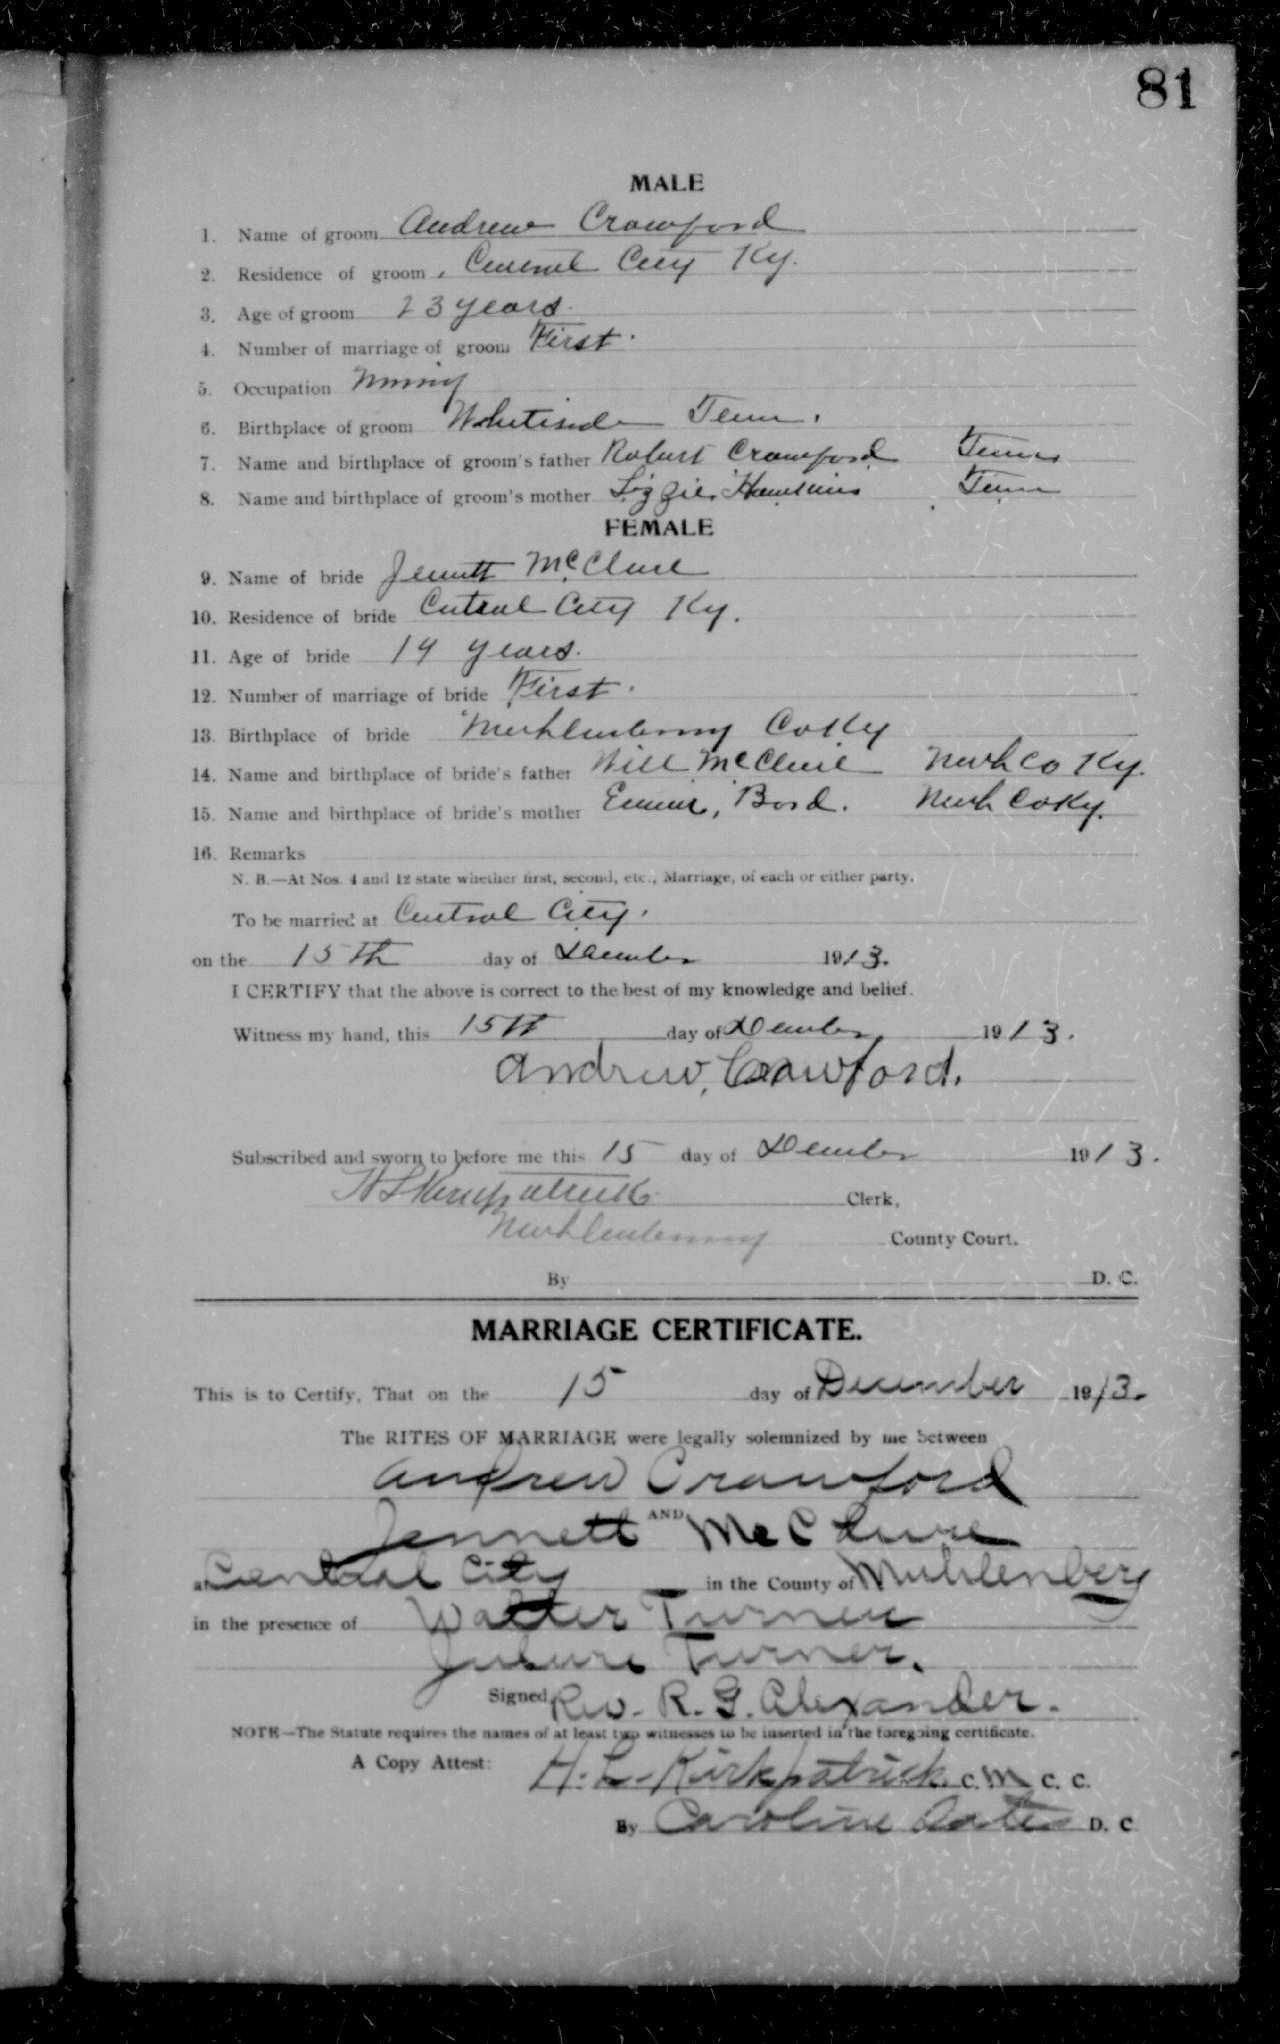 81
MALE
1. Name of groom Andrew Crawford
2. Residence of groom Central City Ky.
3. Age of groom 23 years.
4. Number of marriage of groom First.
5. Occupation Mining
6. Birthplace of groom Whiteside Tenn.
7. Name and birthplace of groom's father Robert Crawford Tenn
8. Name and birthplace of groom's mother Lizzie Hawkins Tenn
FEMALE
9. Name of bride Jennett McClure
10. Residence of bride Central City Ky.
11. Age of bride years.
12. Number of marriage of bride First.
13. Birthplace of bride Muhlenberg Co Ky
14. Name and birthplace of bride's father Will McClure Muh Co Ky.
15. Name and birthplace of bride's mother Bord. Muh Co Ky.
16. Remarks
N. B.—At Nos. 4 and 12 state whether first, second, etc., Marriage, of each or either party.
To be married at Central City.
on the 15th day of December 1913.
I CERTIFY that the above is correct to the best of my knowledge and belief.
Witness my hand, this 15th day of December 1913.
Andrew, Crawford.
Subscribed and sworn to before me this 15 day of December 1913.
H L Kirkpatrick Clerk,
Muhlenberg County Court.
By D. C.
MARRIAGE CERTIFICATE.
This is to Certify, That on the 15 day of December 1913.
The RITES OF MARRIAGE were legally solemnized by me between
Andrew Crawford
AND
Jennett McClure
at Central City in the County of Muhlenberg
in the presence of Walter Turner
Turner.
Signed, Rev. R. G. Alexander.
NOTE—The Statute requires the names of at least two witnesses to be inserted in the foregoing certificate.
A Copy Attest: H. L. Kirkpatrick C. M C. C.
By Caroline Oates D. C